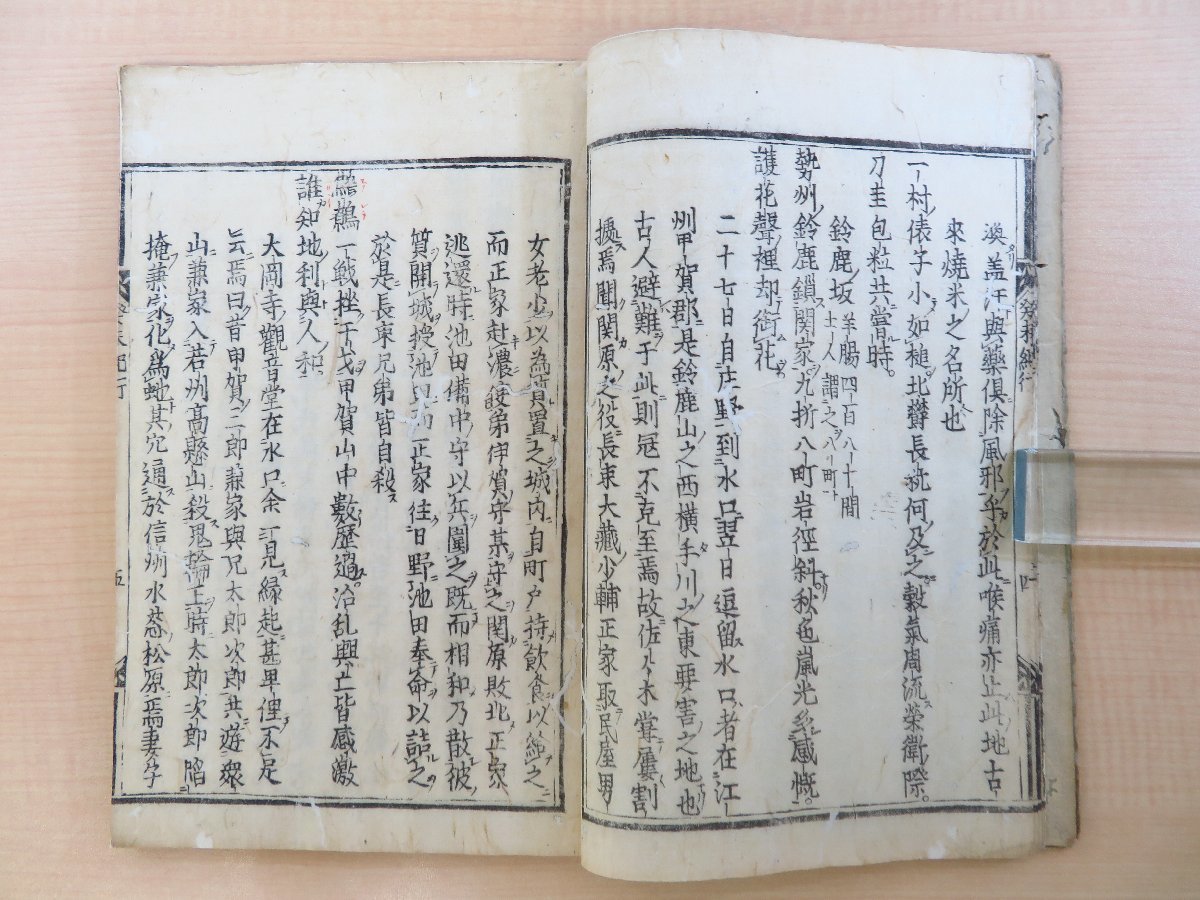 渙盖汗與藥俱除風邪年於此喉痛亦止此地古
來燒米之名所也
一村俵子小如槌北轡長桃何及之穀氣周流榮衛際
刀圭包粒共嘗時
鈴鹿坂 羊腸四百八十間 土人謂之八町
勢州鈴鹿鎖関家九折八町岩徑斜秋色嵐光多感慨
護花聲裡却銜花
二十七日自庄野到水口翌日逗留水口者在江
州甲賀郡是鈴鹿山之西橫手川之東要害之地也
古人避難于此則冦不克至焉故佐々木掌屢割
據焉聞関原之役長束大藏少輔正家取民屋男
女老少以為質置之城内自町戸持飲食以給之
而正家赴濃使弟伊賀守某守之関原敗北正家
逃還時池田備中守以兵圍之既而相和乃散彼
質開城授池田而正家往日野池田奉命以詰之
於是長束兄弟皆自殺
鷸一戦挫干戈甲賀山中數歴過治乱興亡皆感激
誰知地利與人和
大岡寺觀音堂在水口余一見縁起甚卑俚不足
云焉曰昔甲賀三郎兼家與兄太郎次郎共遊衆
山兼家入若州高懸山殺鬼輪王時太郎次郎陷
掩兼家化為虵其穴通於信州水莖松原焉妻孕